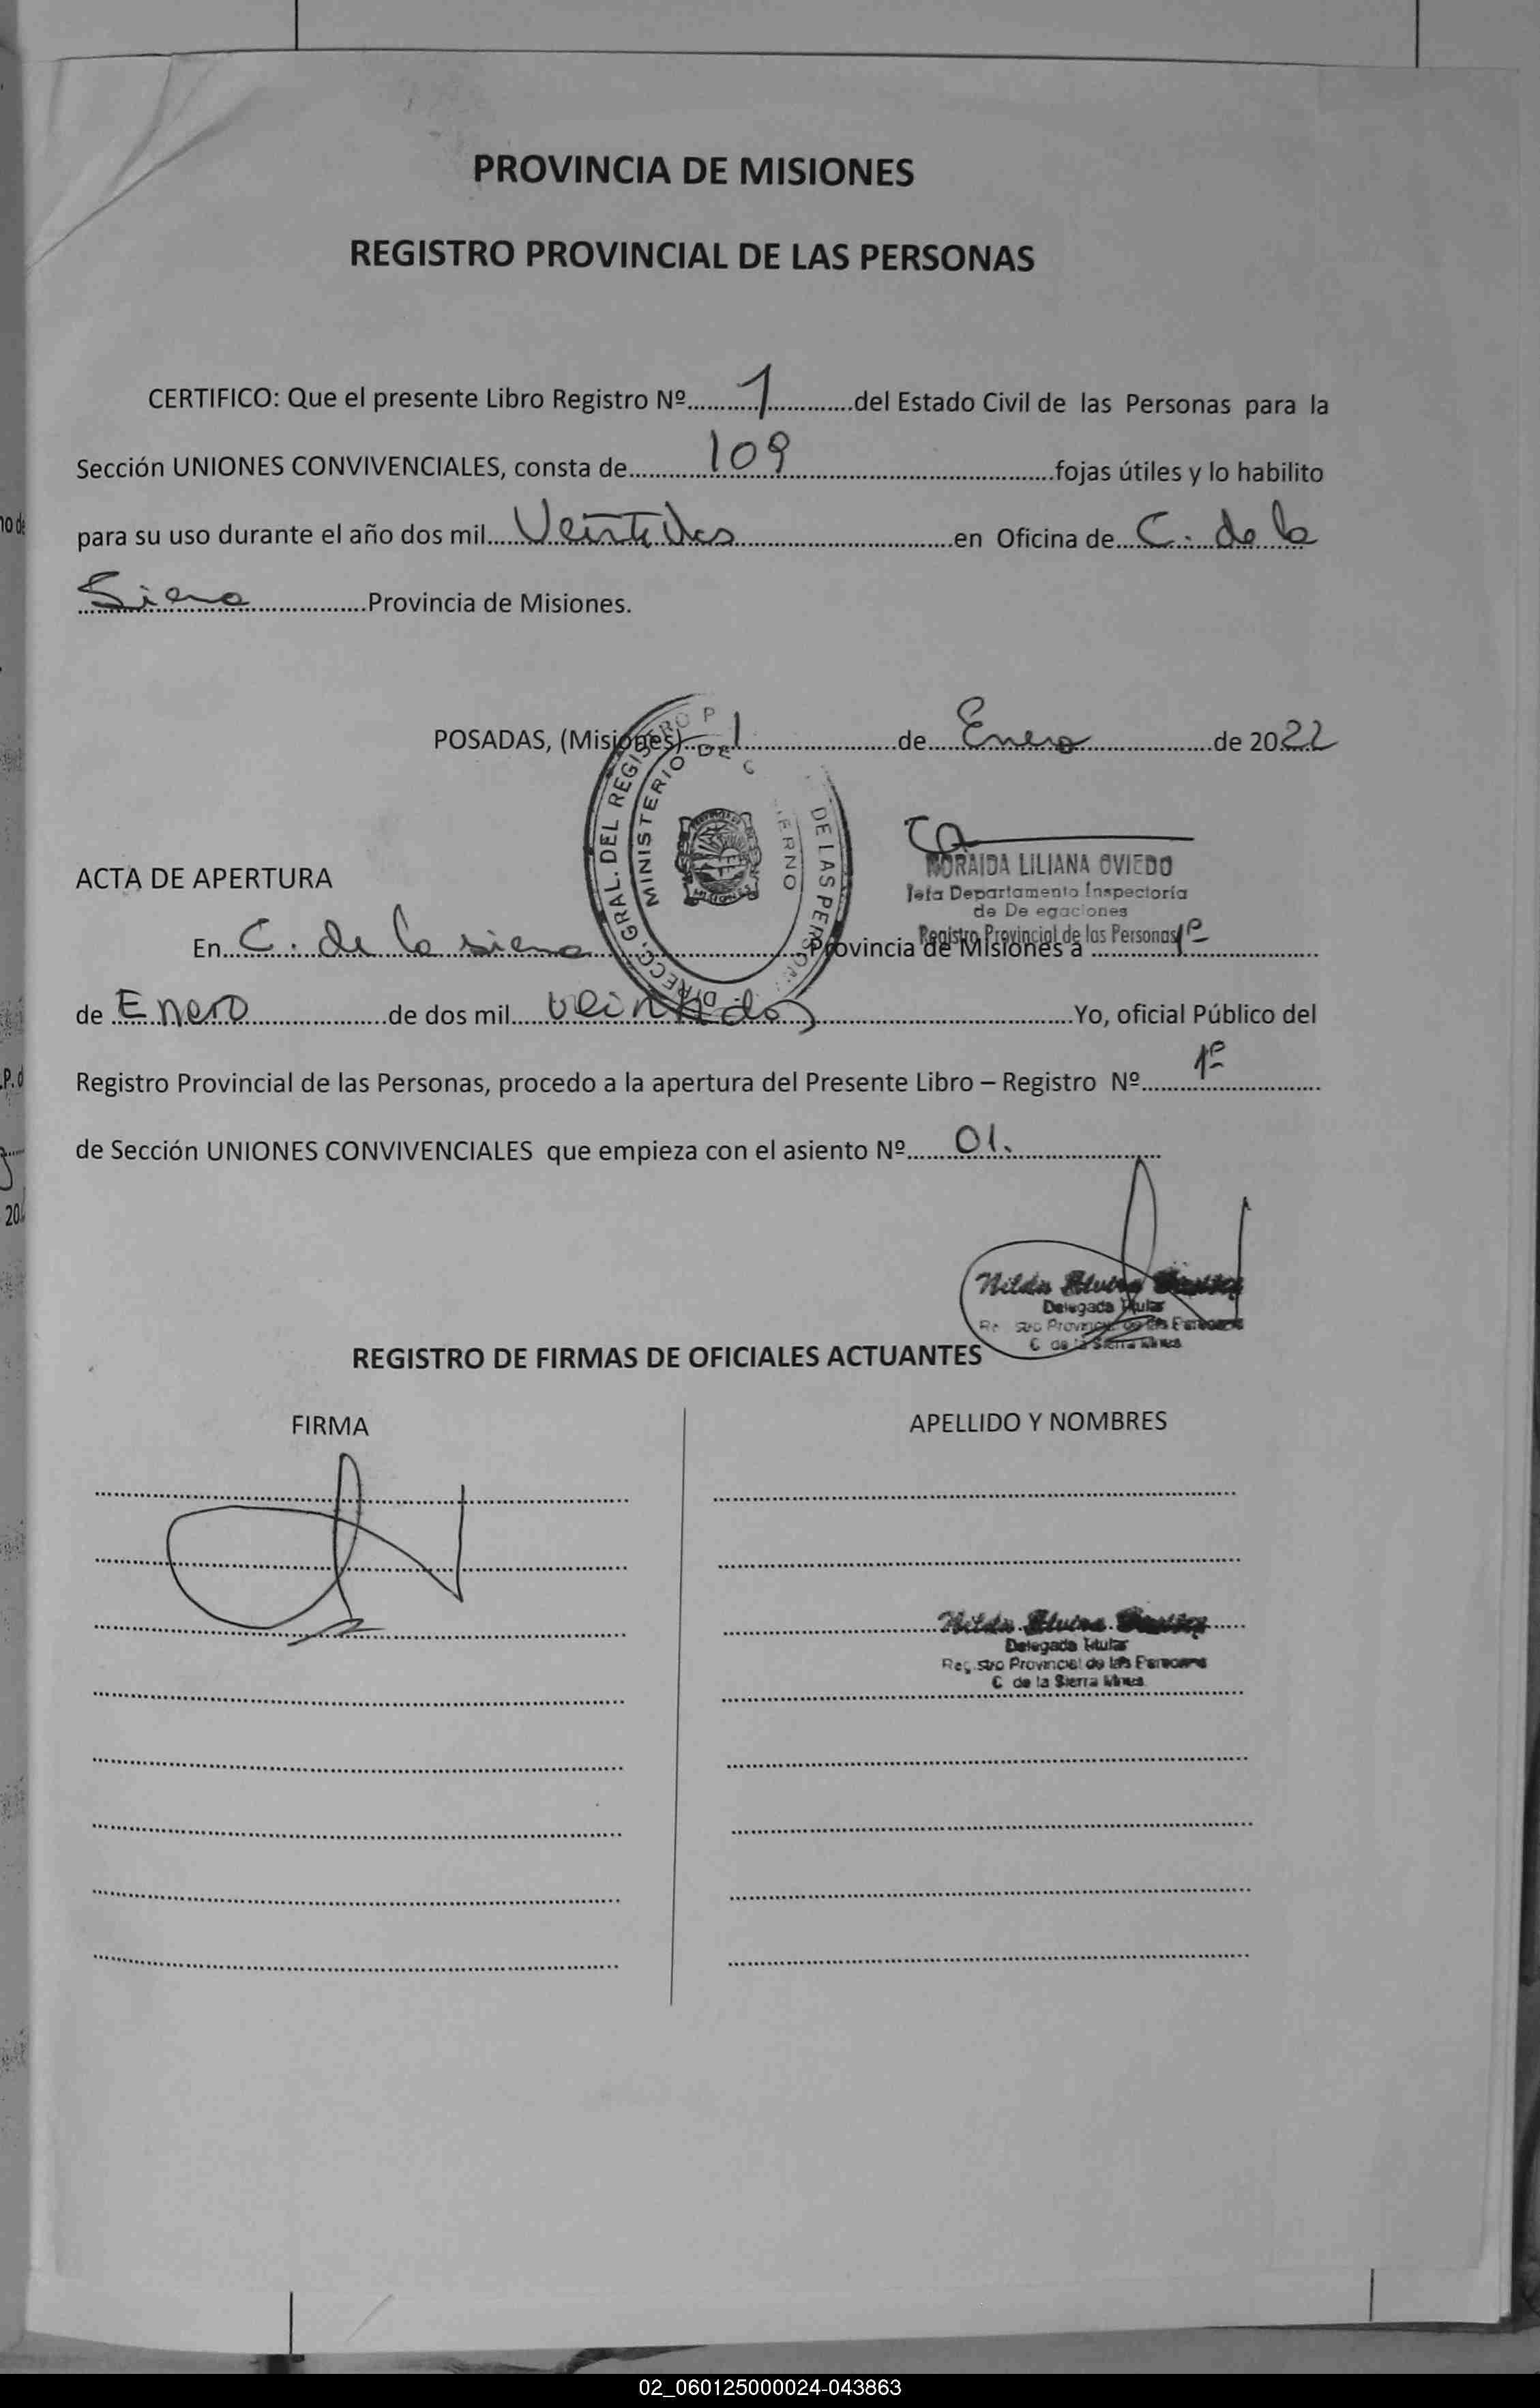 PROVINCIA DE MISIONES
REGISTRO PROVINCIAL DE LAS PERSONAS
CERTIFICO: Que el presente Libro Registro Nº 1 del Estado Civil de las Personas para la
Sección UNIONES CONVIVENCIALES, consta de 109 fojas útiles y lo habilito
para su uso durante el año dos mil Veintidos en Oficina de C. de la
Sierra Provincia de Misiones.
POSADAS, (Misiones) 1 de Enero de 2022
DIRECC. GRAL. DEL REGISTRO P DE LAS PERSON
MINISTERIO DE G ERNO
MISIONES
NORAIDA LILIANA OVIEDO
Jefa Departamento Inspectoría
de De egaciones
Registro Provincial de las Personas
ACTA DE APERTURA
En C. de la sierra Provincia de Misiones a 1º
de Enero de dos mil veintidos Yo, oficial Público del
Registro Provincial de las Personas, procedo a la apertura del Presente Libro – Registro Nº 1º
de Sección UNIONES CONVIVENCIALES que empieza con el asiento Nº 01.
Nilda Elvira
Delegada Titular
Re stro Provincial de las Personas
C de la Sierra Mnes
REGISTRO DE FIRMAS DE OFICIALES ACTUANTES
FIRMA APELLIDO Y NOMBRES
Nilda Elvira
Delegada Titular
Reg stro Provincial de las Personas
C de la Sierra Mnes
P. d
20
02_060125000024-043863